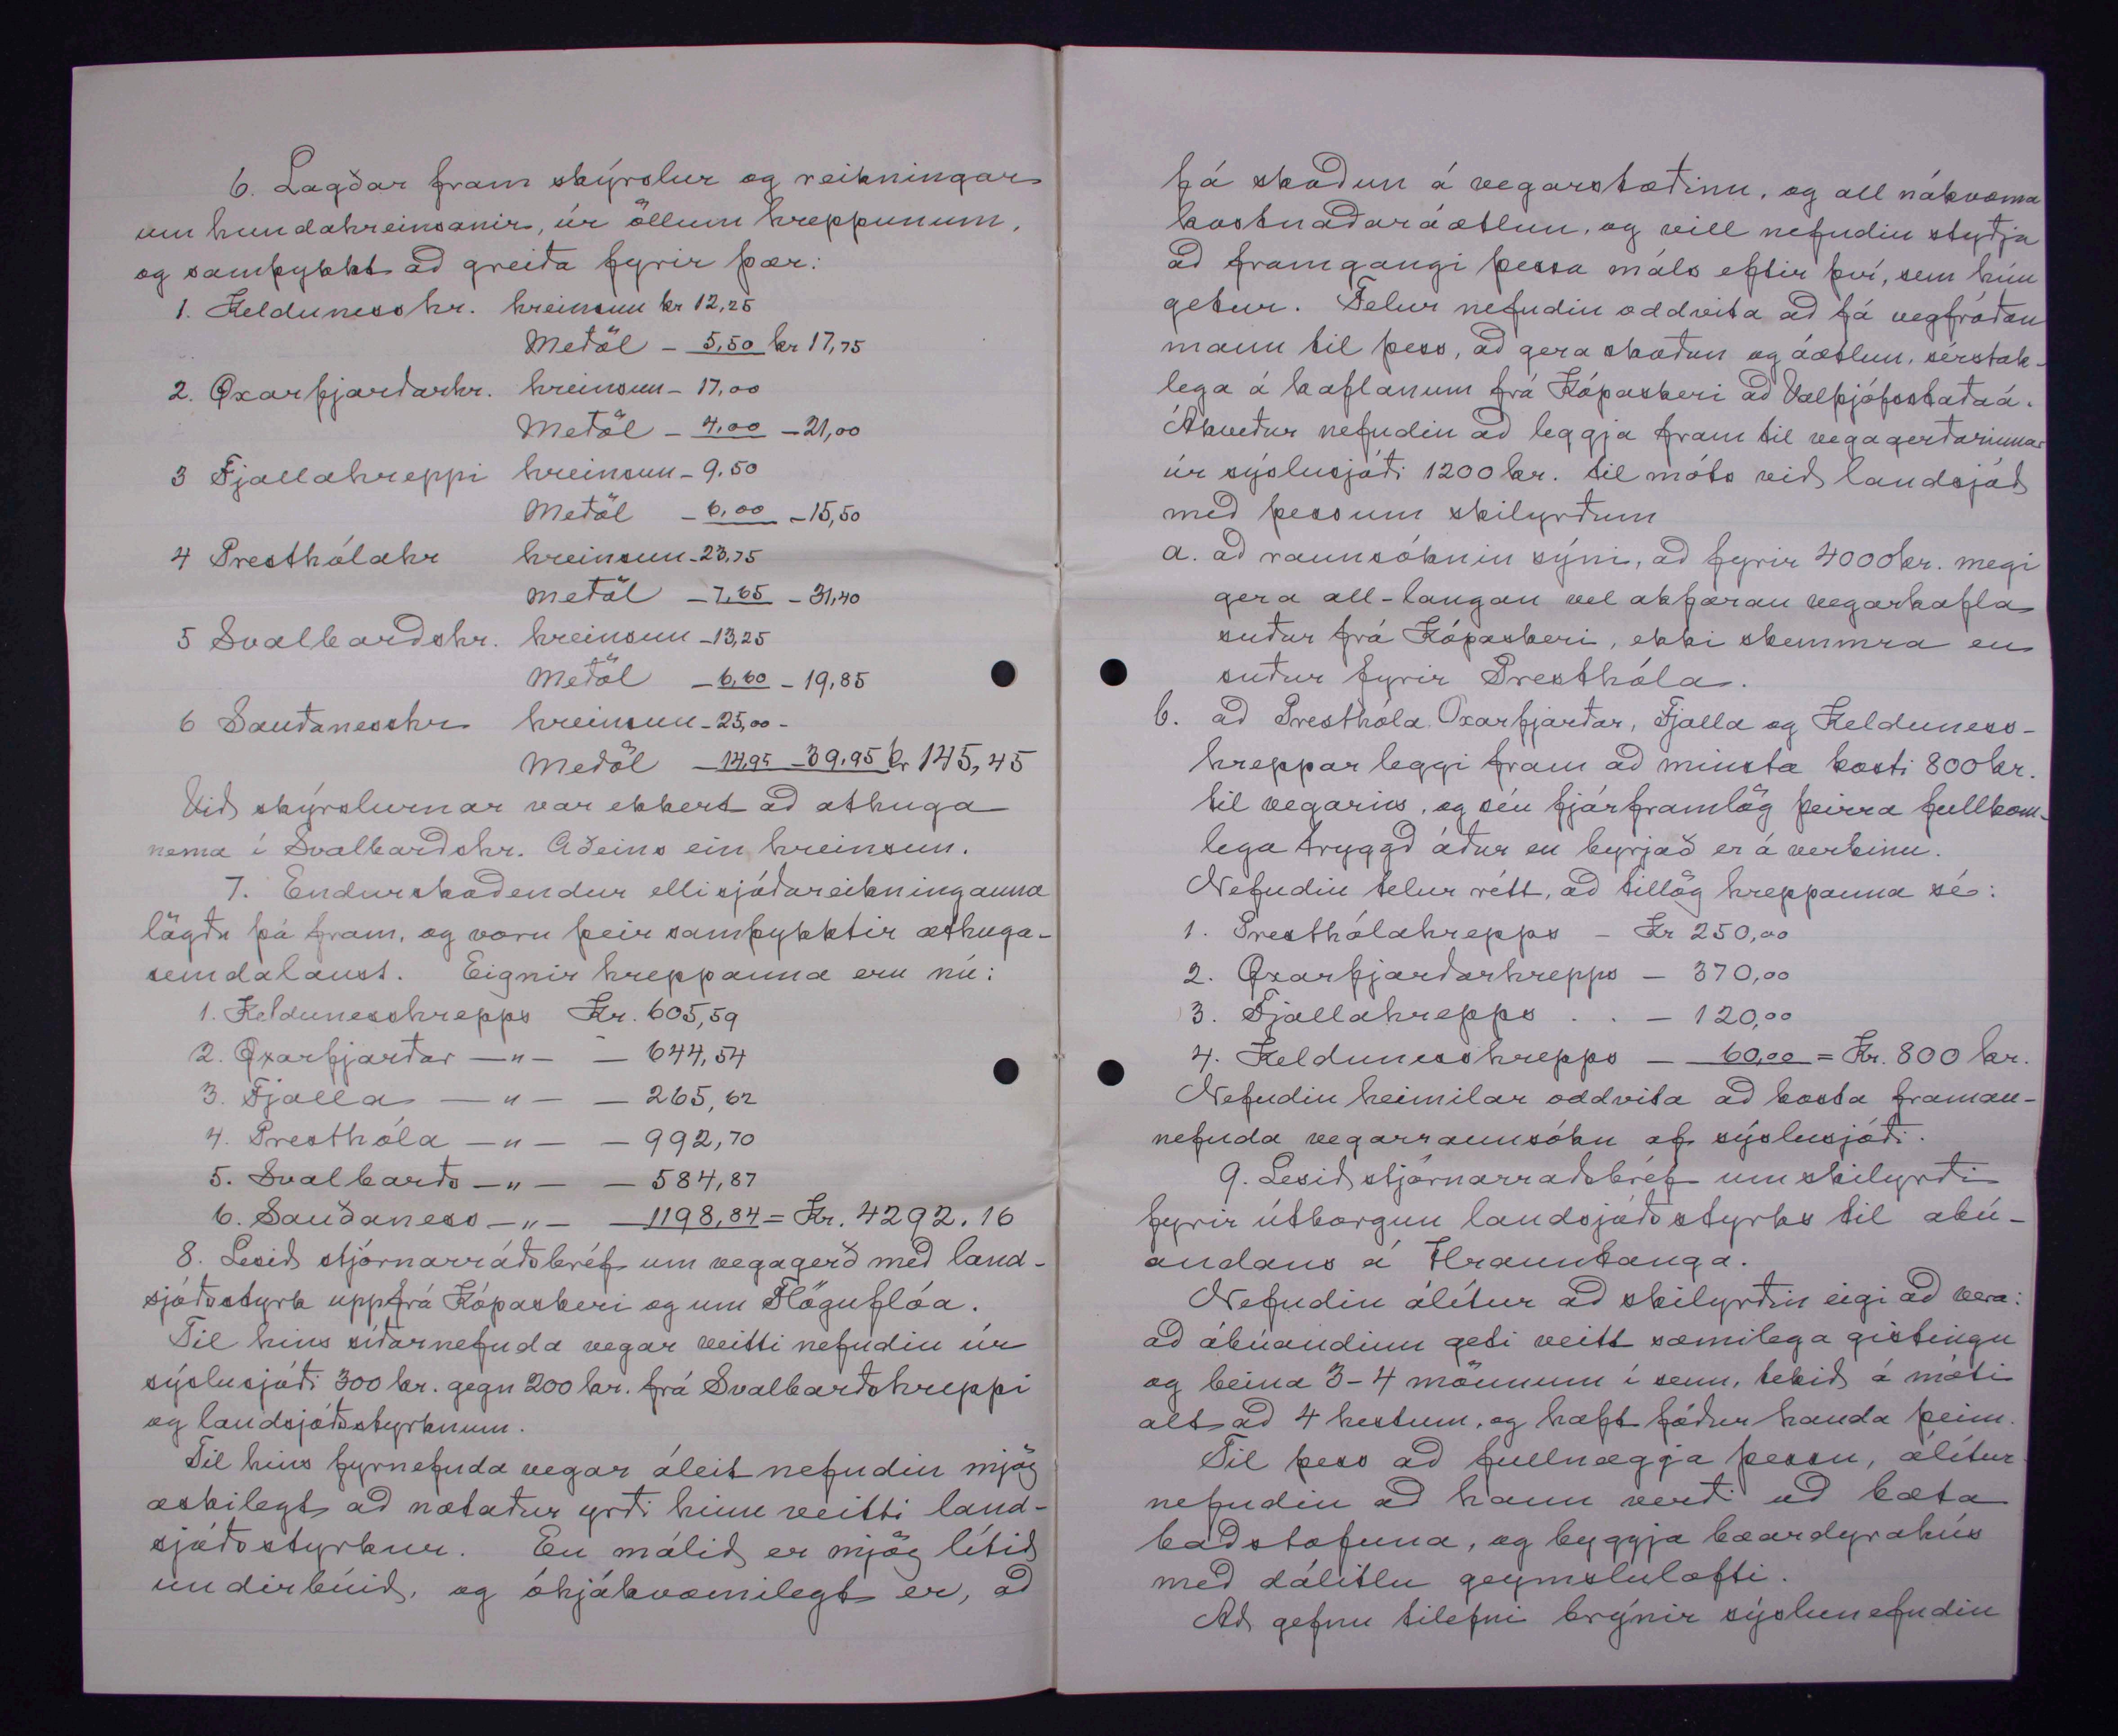 6. Lagðar fram skýrslur og reikningar
um hundahreinsanir, úr öllum hreppunum,
og samþykkt að greiða fyrir þær:
1. Keldunesshr. hreinsun kr 12,25
Meðöl - 5,50 kr 17,75
2. Öxarfjarðarhr. hreinsun - 17,00
Meðöl - 4,00 - 21,00
3 Fjallahreppi hreinsun - 9.50
Meðöl - 6,00 - 15,50
4 Presthólahr hreinsun - 23,75
meðöl - 7,65 - 31,40
5 Svalbarðshr. hreinsun - 13,25
Meðöl - 6,60 - 19,85
6 Sauðanesshr hreinsun - 25,00 -
Meðöl - 14,95 - 39,95 kr 145,45
Við skýrslurnar var ekkert að athuga
nema í Svalbarðshr. Aðeins ein hreinsun.
7. Endurskoðendur ellisjóðareikninganna
lögðu þá fram, og voru þeir samþykktir athuga-
semdalaust. Eignir hreppanna eru nú:
1. Keldunesshrepps Kr. 605,59
2. Öxarfjarðar — " — — 644,54
3. Fjalla — " — — 265,62
4. Presthóla — " — — 992,70
5. Svalbarðs — " — — 584,87
6. Sauðaness — " — — 1198,84 = Kr. 4292.16
8. Lesið stjórnarráðsbréf um vegagerð með land-
sjóðsstyrk uppfrá Kópaskeri og um Flöguflóa.
Til hins síðarnefnda vegar veitti nefndin úr
sýslusjóði 300 kr. gegn 200 kr. frá Svalbarðshreppi
og landsjóðsstyrknum.
Til hins fyrnefnda vegar áleit nefndin mjög
æskilegt að notaður yrði hinn veitti land-
sjóðsstyrkur. En málið er mjög lítið
undirbúið, og óhjákvæmilegt er, að
fá skoðun á vegarstæðinu, og all nákvæma
kostnaðaráætlun, og vill nefndin styðja
að framgangi þessa máls eftir því, sem hún
getur. Felur nefndin oddvita að fá vegfróðan
mann til þess, að gera skoðun og áætlun, sérstak-
lega á kaflanum frá Kópaskeri að Valþjófsstaðaá.
Ákveður nefndin að leggja fram til vegagerðarinnar
úr sýslusjóði 1200 kr. til móts við landsjóð
með þessum skilyrðum
a. að rannsóknin sýni, að fyrir 4000 kr. megi
gera all-langan vel akfæran vegarkafla
suður frá Kópaskeri, ekki skemmra en
suður fyrir Presthóla.
b. að Presthóla. Öxarfjarðar, Fjalla og Kelduness-
hreppar leggi fram að minsta kosti 800 kr.
til vegarins, og séu fjárframlög þeirra fullkom-
lega tryggð áður en byrjað er á verkinu.
Nefndin telur rétt, að tillög hreppanna sé:
1. Presthólahrepps - Kr 250,00
2. Öxarfjarðarhrepps — 370,00
3. Fjallahrepps . . — 120,00
4. Keldunesshrepps — 60,00 = Kr. 800 kr.
Nefndin heimilar oddvita að kosta framan-
nefnda vegarrannsókn af sýslusjóði.
9. Lesið stjórnarraðsbréf um skilyrði
fyrir útborgun landsjóðsstyrks til abú-
andans á Hrauntanga.
Nefndin álítur að skilyrðin eigi að vera:
að ábúandinn geti veitt sæmilega gistingu
og beina 3-4 mönnum í senn, tekið á móti
alt að 4 hestum, og haft fóður handa þeim.
Til þess að fullnægja þessu, álítur
nefndin að hann verði að bæta
baðstofuna, og byggja bæardyrahús
með dálitlu geymslulofti.
Að gefnu tilefni brýnir sýslunefndin